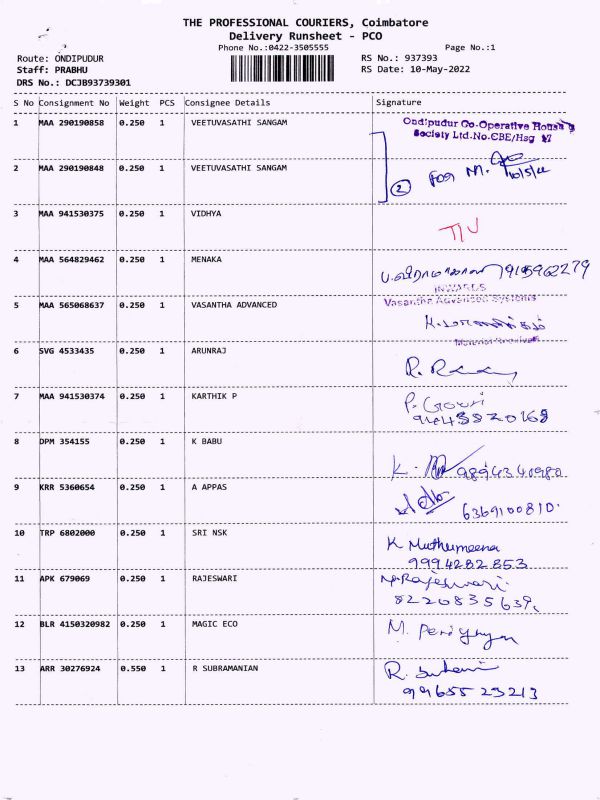 THE PROFESSIONAL COURIERS, Coimbatore
Delivery Runsheet - PCO
Phone No.:0422-3505555
Page No.:1
Route: ONDIPUDUR
RS No.: 937393
Staff: PRABHU
RS Date: 10-May-2022
DRS No.: DCJB93739301
S No Consignment No Weight PCS Consignee Details Signature
1 MAA 290190858 0.250 1 VEETUVASATHI SANGAM
Ondipudur Co-Operative House
Society Ltd.No.CBE/Hsg
2 MAA 290190848 0.250 1 VEETUVASATHI SANGAM
2 For M. 10/5/22
3 MAA 941530375 0.250 1 VIDHYA
4 MAA 564829462 0.250 1 MENAKA
INWARDS
5 MAA 565068637 0.250 1 VASANTHA ADVANCED
Vasantha Advanced Systems
Material Received
6 SVG 4533435 0.250 1 ARUNRAJ
7 MAA 941530374 0.250 1 KARTHIK P
P. Gowri
8 DPM 354155 0.250 1 K BABU
K. 9894340980
9 KRR 5360654 0.250 1 A APPAS
6369100810
10 TRP 6802000 0.250 1 SRI NSK
K Muthumeena
9994282853
11 APK 679069 0.250 1 RAJESWARI
Rajeshwari
8220835639
12 BLR 4150320982 0.250 1 MAGIC ECO
13 ARR 30276924 0.550 1 R SUBRAMANIAN
9965523213